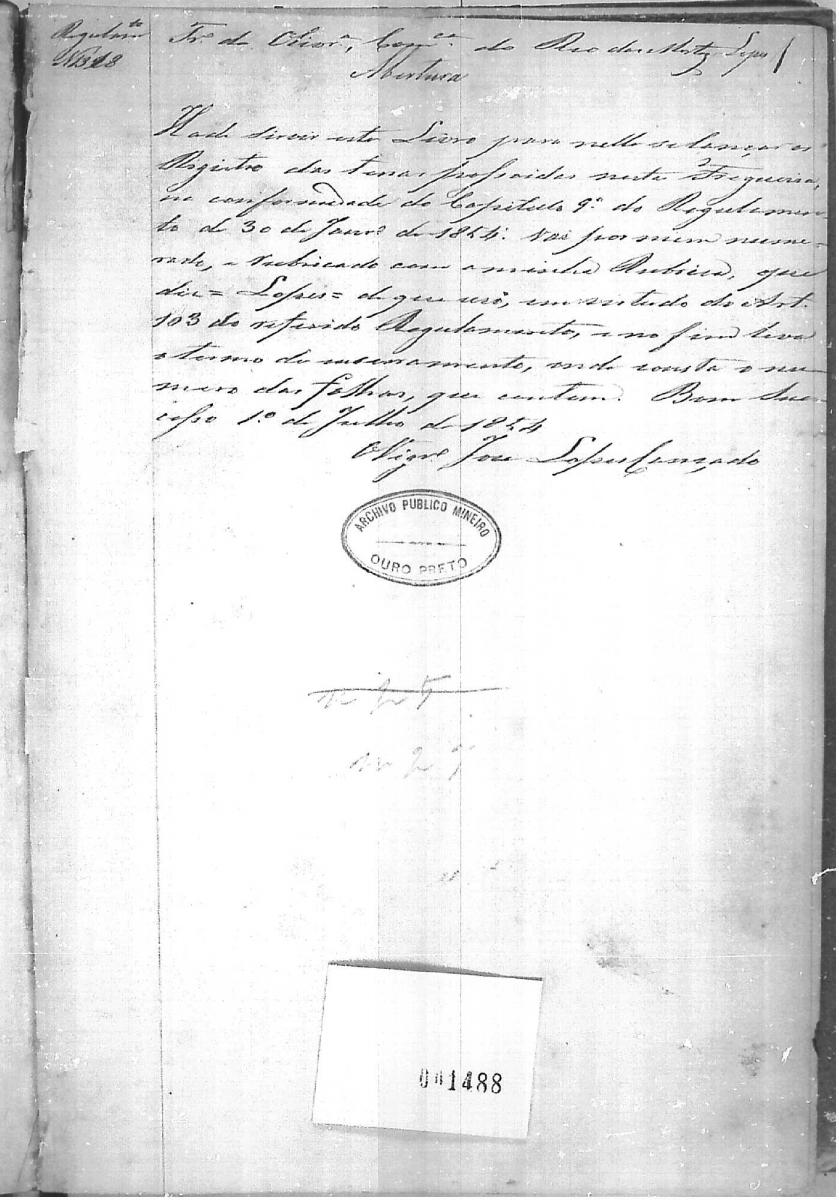 Regulam.to
N 1318
Fr.a de Oliv.ra, Com.ca do Rio das Mortes Lopes
Abertura
Hade servir este Livro para nelle se lançar o
Registro das terras possuidas nesta Freguezia,
na conformidade do Capitulo 9.o do Regulamen-
to de 30 de Janr.o de 1854. Vai por mim nume-
rado, e rubricado com a minha Rubrica, que
diz = Lopes = de que uso, em virtude do Art.
103 do referido Regulamento, e no fim leva
o termo de encerramento, onde consta o nu-
mero das folhas, que contem. Bom Suc-
cesso 1.o de Julho de 1854
O Vigr.o Jose Lopes Cançado
ARCHIVO PUBLICO MINEIRO
OURO PRETO
001488